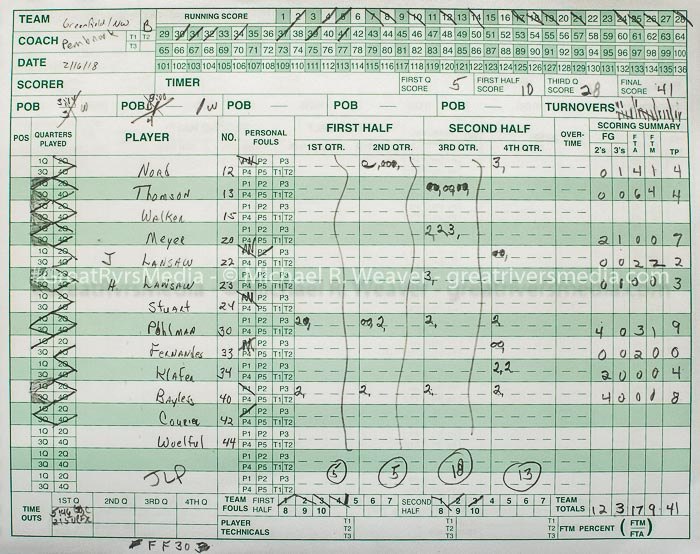 TEAM Greenfield/NW B RUNNING SCORE 1 2 3 4 5 6 7 8 9 10 11 12 13 14 15 16 17 18 19 20 21 22 23 24 25 26 27 28
COACH Pembrook T1 T2 T3 29 30 31 32 33 34 35 36 37 38 39 40 41 42 43 44 45 46 47 48 49 50 51 52 53 54 55 56 57 58 59 60 61 62 63 64
65 66 67 68 69 70 71 72 73 74 75 76 77 78 79 80 81 82 83 84 85 86 87 88 89 90 91 92 93 94 95 96 97 98 99 100
DATE 2/16/18 101 102 103 104 105 106 107 108 109 110 111 112 113 114 115 116 117 118 119 120 121 122 123 124 125 126 127 128 129 130 131 132 133 134 135 136
SCORER TIMER FIRST Q SCORE 5 FIRST HALF SCORE 10 THIRD Q SCORE 28 FINAL SCORE 41
POB W POB W POB — POB — POB — TURNOVERS
POS QUARTERS PLAYED PLAYER NO. PERSONAL FOULS FIRST HALF SECOND HALF OVER-TIME SCORING SUMMARY
1ST QTR. 2ND QTR. 3RD QTR. 4TH QTR. FG 2's 3's FTA FTM TP
Nord 12 3, 0 1 4 1 4
Thomson 13 0 0 6 4 4
Walker 15
Meyer 20 2,2,3, 2 1 0 0 7
J Lansaw 22 0 0 2 2 2
A Lansaw 23 3, 0 1 0 0 3
Stuart 24
Pohlman 30 2, 2, 2 4 0 3 1 9
Fernandes 33 0 0 2 0 0
Klafer 34 2,2 2 0 0 0 4
Bayless 40 2, 2, 2, 2, 4 0 0 0 8
Courier 42
Woelful 44
JLP 5 5 18 13
TIME OUTS 1ST Q 2ND Q 3RD Q 4TH Q TEAM FOULS FIRST HALF 1 2 3 4 5 6 7 8 9 10 SECOND HALF 1 2 3 4 5 6 7 8 9 10 TEAM TOTALS 12 3 17 9 41
PLAYER TECHNICALS T1 T2 T3 T1 T2 T3 FTM PERCENT (FTM/FTA)
FF30
GreatRvrsMedia - © Michael R. Weaver - greatriversmedia.com